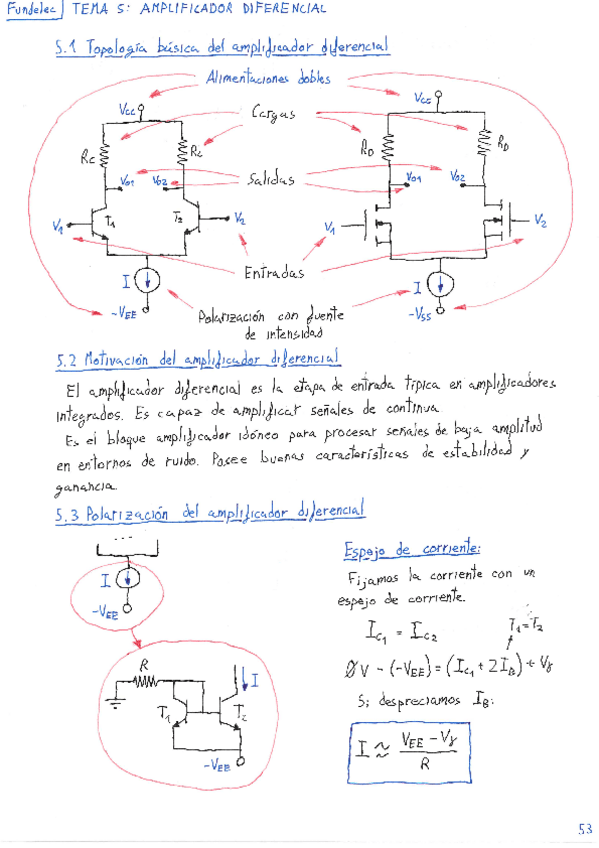 Fundelec TEMA 5: AMPLIFICADOR DIFERENCIAL
5.1 Topología básica del amplificador diferencial
Alimentaciones dobles
Vcc Cargas Vcc
Rc Rc RD RD
Vo1 Vo2 Salidas Vo1 Vo2
V1 T1 T2 V2 V1 V2
Entradas
I I
-VEE Polarización con fuente -VSS
de intensidad
5.2 Motivación del amplificador diferencial
El amplificador diferencial es la etapa de entrada típica en amplificadores
integrados. Es capaz de amplificar señales de continua.
Es el bloque amplificador idóneo para procesar señales de baja amplitud
en entornos de ruido. Posee buenas características de estabilidad y
ganancia.
5.3 Polarización del amplificador diferencial
...
I
-VEE
R
I
T1 T2
-VEE
Espejo de corriente:
Fijamos la corriente con un
espejo de corriente.
Ic1 = Ic2 T1=T2
0V - (-VEE) = (Ic1 + 2IB) + Vγ
Si despreciamos IB:
I ≈ VEE - Vγ
R
53